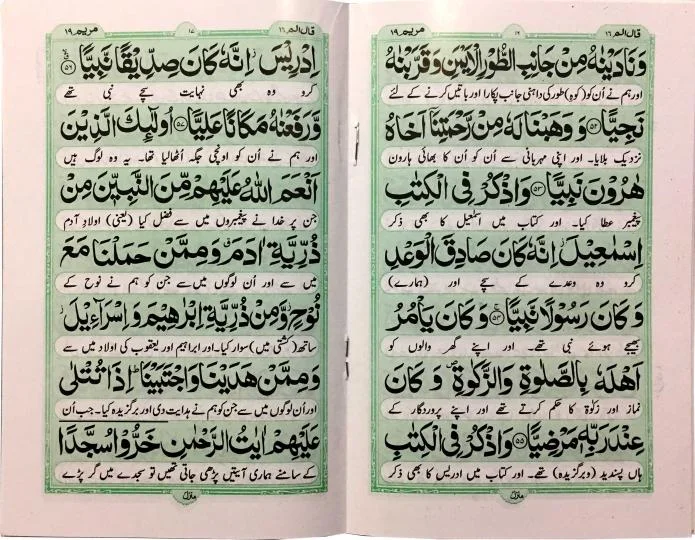 قال الم ١٦
١٦
مریم ١٩
وَنَادَيْنٰهُ مِنْ جَانِبِ الطُّوْرِ الْاَيْمَنِ وَقَرَّبْنٰهُ
اور ہم نے اُن کو (کوہِ) طور کی داہنی جانب پکارا اور باتیں کرنے کے لئے
نَجِيًّا ﴿٥٢﴾ وَوَهَبْنَا لَهٗ مِنْ رَّحْمَتِنَآ اَخَاهُ
نزدیک بلایا۔ اور اپنی مہربانی سے اُن کو اُن کا بھائی ہارون
هٰرُوْنَ نَبِيًّا ﴿٥٣﴾ وَاذْكُرْ فِى الْكِتٰبِ
پیغمبر عطا کیا۔ اور کتاب میں اسمٰعیل کا بھی ذکر
اِسْمٰعِيْلَ ۚ اِنَّهٗ كَانَ صَادِقَ الْوَعْدِ
کرو وہ وعدے کے سچے اور (ہمارے)
وَكَانَ رَسُوْلًا نَّبِيًّا ﴿٥٤﴾ وَكَانَ يَاْمُرُ
بھیجے ہوئے نبی تھے۔ اور اپنے گھر والوں کو
اَهْلَهٗ بِالصَّلٰوةِ وَالزَّكٰوةِ ۪ وَكَانَ
نماز اور زکوٰۃ کا حکم کرتے تھے اور اپنے پروردگار کے
عِنْدَ رَبِّهٖ مَرْضِيًّا ﴿٥٥﴾ وَاذْكُرْ فِى الْكِتٰبِ
ہاں پسندیدہ (و برگزیدہ) تھے۔ اور کتاب میں ادریس کا بھی ذکر
منزل
قال الم ١٦
١٧
مریم ١٩
اِدْرِيْسَ ۚ اِنَّهٗ كَانَ صِدِّيْقًا نَّبِيًّا ﴿٥٦﴾
کرو وہ بھی نہایت سچے نبی تھے
وَّرَفَعْنٰهُ مَكَانًا عَلِيًّا ﴿٥٧﴾ اُولٰٓئِكَ الَّذِيْنَ
اور ہم نے اُن کو اونچی جگہ اُٹھالیا تھا۔ یہ وہ لوگ ہیں
اَنْعَمَ اللّٰهُ عَلَيْهِمْ مِّنَ النَّبِيّٖنَ مِنْ
جن پر خدا نے پیغمبروں میں سے فضل کیا (یعنی) اولادِ آدم
ذُرِّيَّةِ اٰدَمَ ۗ وَمِمَّنْ حَمَلْنَا مَعَ
میں سے اور اُن لوگوں میں سے جن کو ہم نے نوح کے
نُوْحٍ ۖ وَّمِنْ ذُرِّيَّةِ اِبْرٰهِيْمَ وَاِسْرَآءِيْلَ ۖ
ساتھ (کشتی میں) سوار کیا۔ اور ابراہیم اور یعقوب کی اولاد میں سے
وَمِمَّنْ هَدَيْنَا وَاجْتَبَيْنَا ۗ اِذَا تُتْلٰى
اور اُن لوگوں میں سے جن کو ہم نے ہدایت دی اور برگزیدہ کیا۔ جب اُن
عَلَيْهِمْ اٰيٰتُ الرَّحْمٰنِ خَرُّوْا سُجَّدًا
کے سامنے ہماری آیتیں پڑھی جاتی تھیں تو سجدے میں گر پڑے
منزل